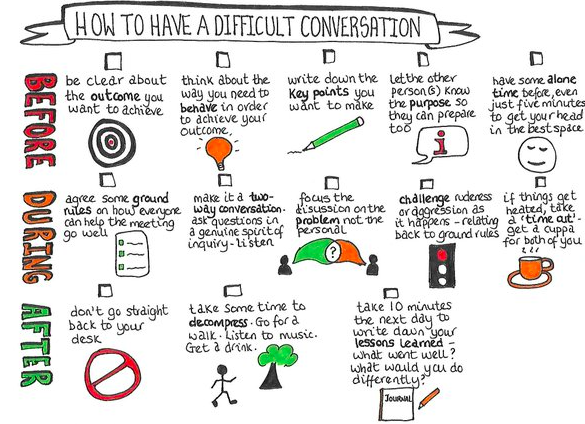 HOW TO HAVE A DIFFICULT CONVERSATION
BEFORE
be clear about
the outcome you
want to achieve
think about the
way you need to
behave in order
to achieve your
outcome.
write down the
key points you
want to make
let the other
person(s) know
the purpose so
they can prepare
too
i
have some alone
time before, even
just five minutes
to get your head
in the best space
DURING
agree some ground
rules on how everyone
can help the meeting
go well
make it a two-
way conversation.
ask questions in
a genuine spirit of
inquiry - listen
focus the
discussion on the
problem not the
personal
?
challenge rudeness
or aggression as
it happens - relating
back to ground rules
if things get
heated, take
a 'time out' -
get a cuppa
for both of you
AFTER
don't go straight
back to your
desk
take some time to
decompress. Go for a
walk. Listen to music.
Get a drink.
take 10 minutes
the next day to
write down your
lessons learned -
what went well?
what would you do
differently?
JOURNAL